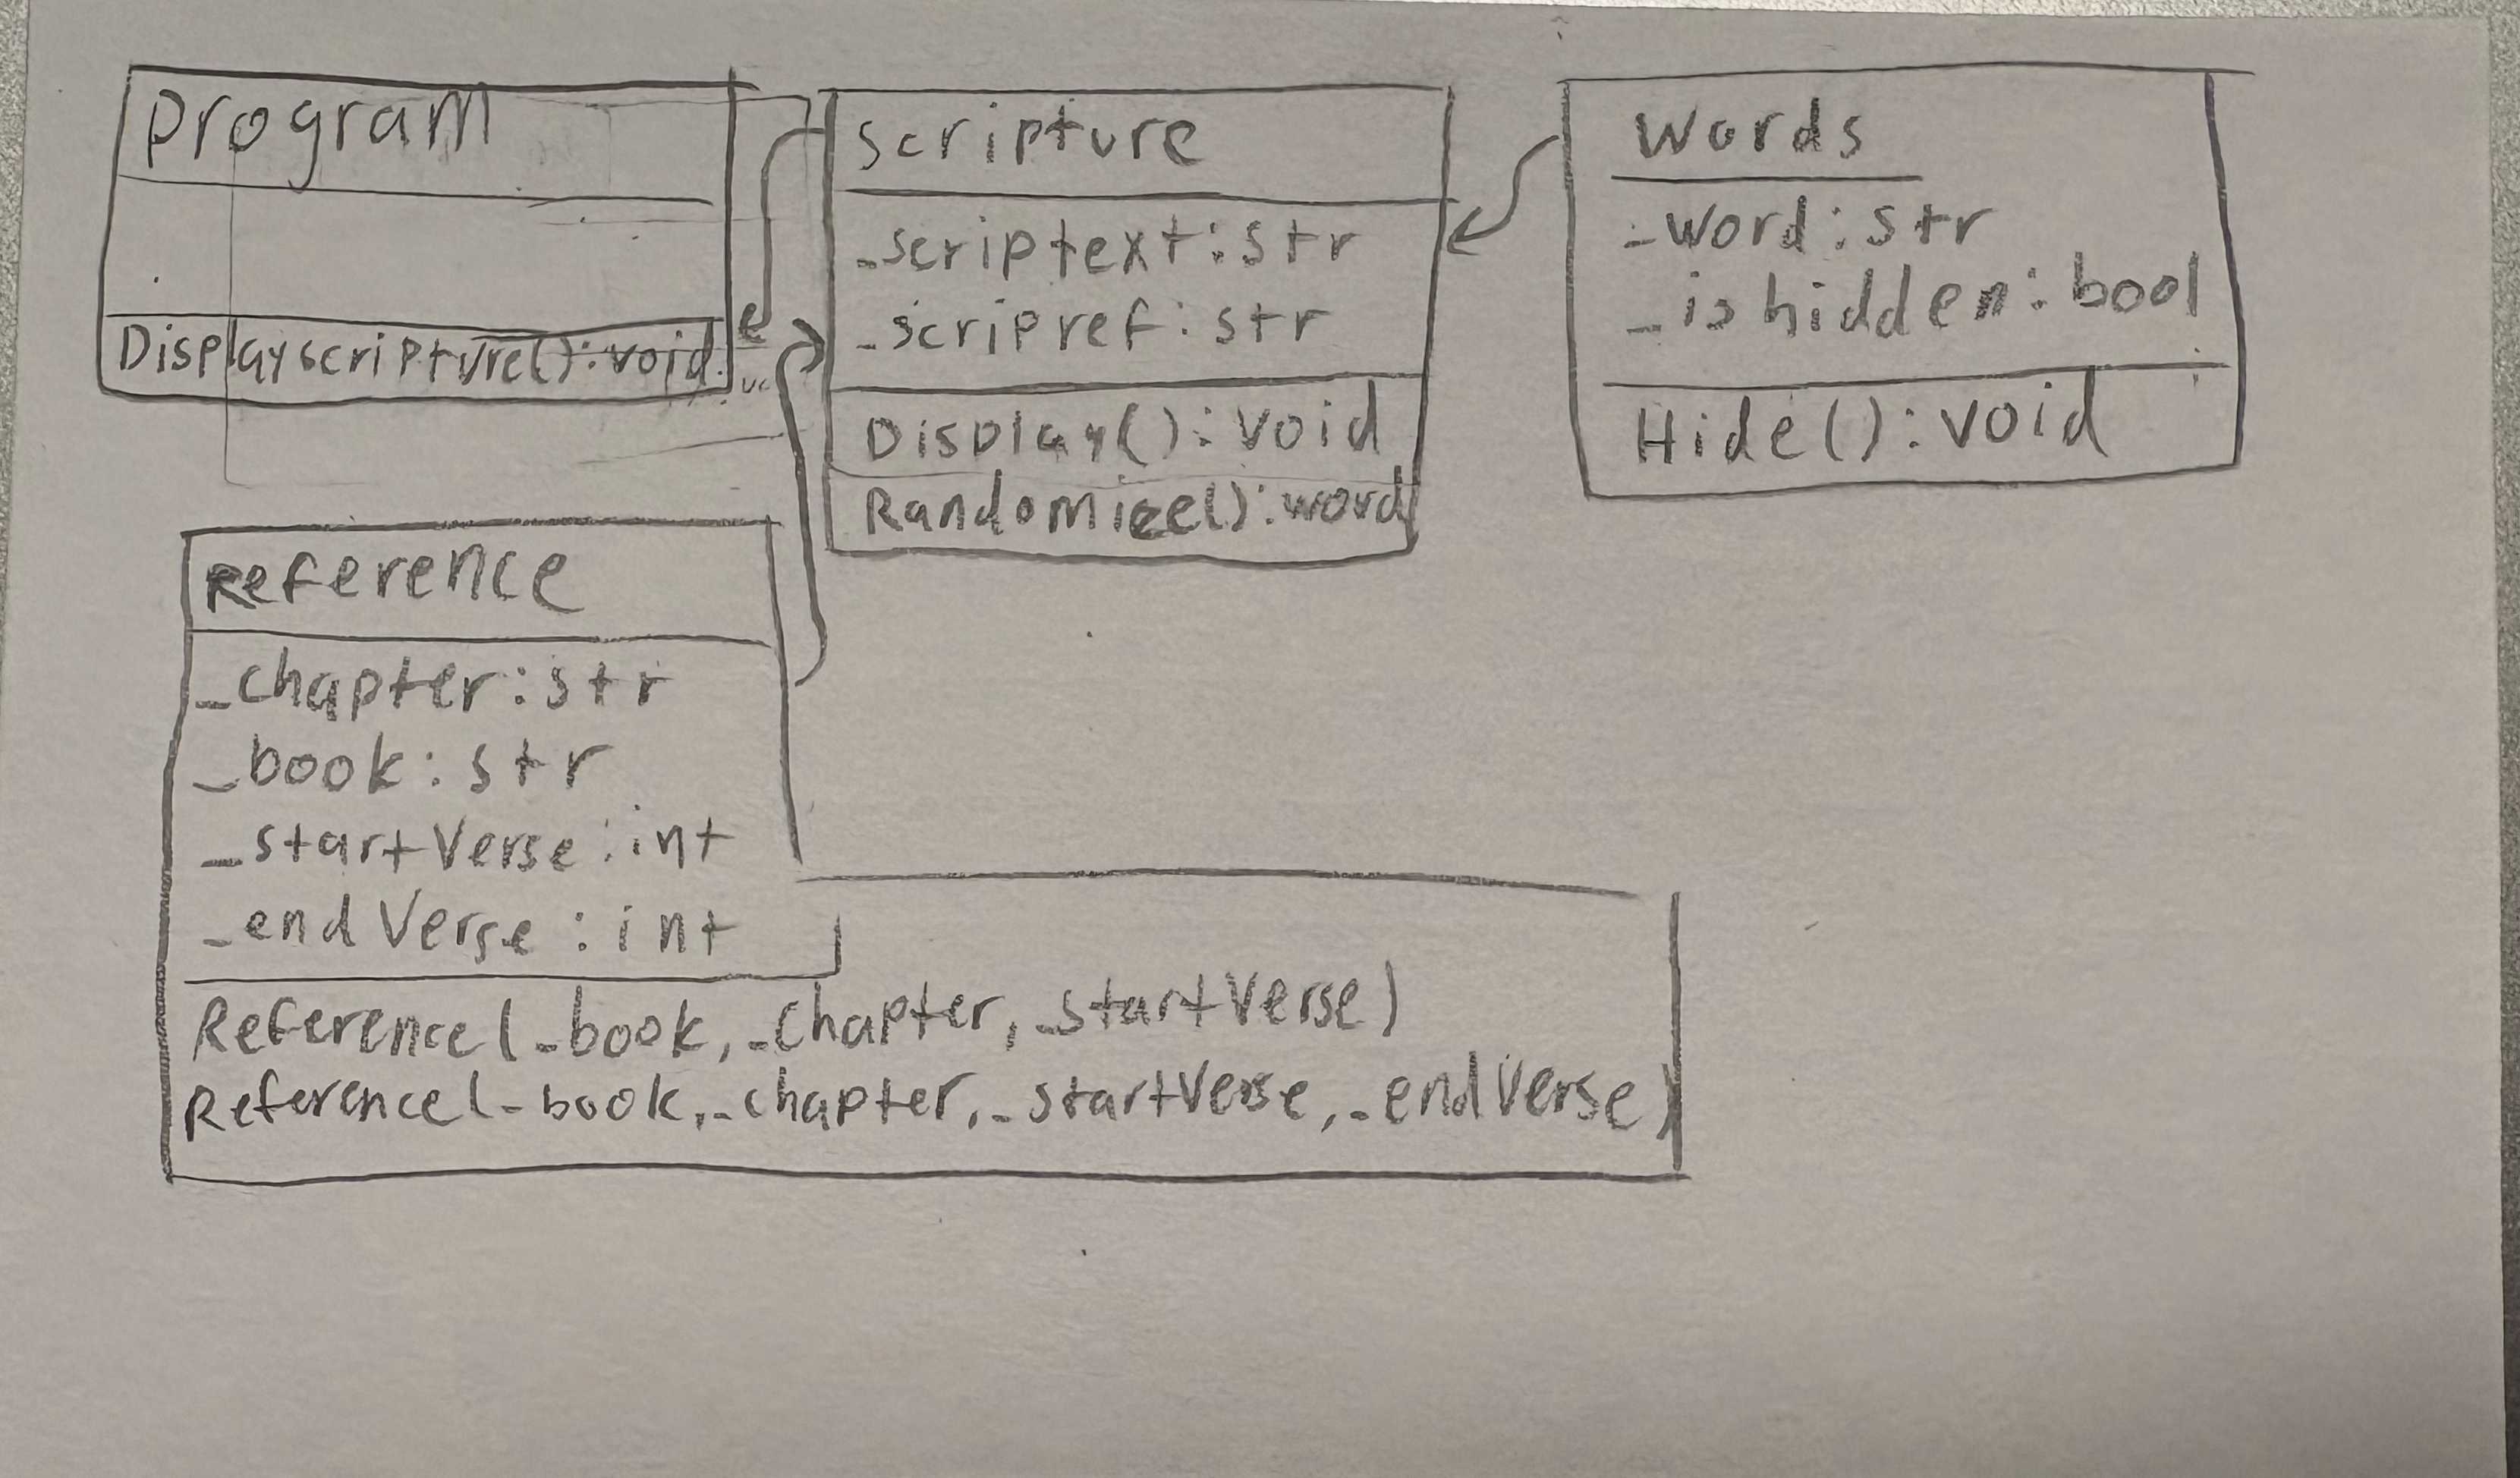 Program
Displayscripture():void
scripture
_scriptext:str
_scripref:str
Display():void
Randomize():word
Words
_word:str
_ishidden:bool
Hide():void
Reference
_chapter:str
_book:str
_startVerse:int
_endVerse:int
Reference(_book,_chapter,_startVerse)
Reference(_book,_chapter,_startVerse,_endVerse)